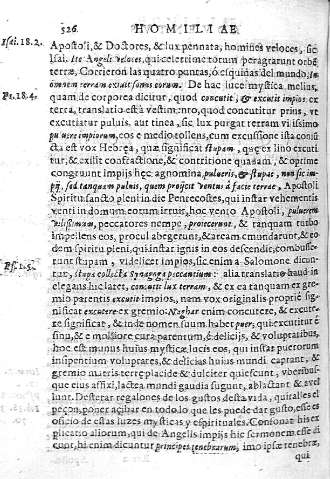 526
HOMILIAE
Isai. 18. 2.
Apostoli, & Doctores, & lux pennata, homines veloces, sic
Isai. Ite Angeli veloces, qui celerrime totum peragrarunt orbē
terræ, Corrieron las quatro puntas, ó esquinas del mundo, In
omnem terram exiuit sonus eorum. De hac luce mystica melius,
Ps. 18. 4.
quam de corporea dicitur, quod concutit, & excutit impios ex
terra, translatio est à vestimento, quod concutitur prius, vt
excutiatur puluis, aut tinea, sic lux purgat terram vilissimo
puluere impiorum, eos è medio tollens, cum excussione ista consū
cta est vox Hebræa, quæ significat stupam, quæ ex lino excuti
tur, & exilit confractione, & contritione quadam, & optime
congruunt impijs hæc agnomina, pulueris, & stupæ, non sic im
pij, sed tanquam puluis, quem projicit ventus à facie terræ, Apostoli
Spiritu sancto pleni in die Pentecostes, qui instar vehementis
venti in domum eorum irruit, hoc vento Apostoli, puluerem
vilissimum, peccatores nempe, proiecerunt, & tanquam turbo
impellens eos, procul abegerunt, & arcam emundarunt, & eo
dem spiritu pleni, qui instar ignis in eos descendit, combusse
runt stupam, videlicet impios, sic enim à Salomone dicun
tur, stupa collecta Synagoga peccantium: alia translatio haud in
elegans hîc latet, concuti lux terram, & ex ea tanquam ex gre
mio parentis excutit impios, nam vox originalis propriè sig
nificat excutere ex gremio: Naghar enim concutere, & excute-
re significat, & inde nomen suum habet puer, qui excutitur è
sinu, & è molliore cura parentum, è delicijs, & voluptatibus,
hoc est munus huius mysticæ lucis eos, qui instar puerorum
insipientium voluptates, & delicias huius mundi captant, & è
gremio matris terræ placidè & dulciter quiescunt, vberibus-
que eius affixi, lactea mundi gaudia sugunt, ablactant, & avel
lunt. Desterrar regalones de los gustos desta vida, quitalles el
peçon, poner açibar en todo lo que les puede dar gusto, esse es
oficio de estas luzes mysticas y espirituales. Consonat his ex
plicatio aliorum, qui de Angelis impijs hîc sermonem esse di
cunt, hi enim dicuntur principes tenebrarum, imo ipsæ tenebræ,
qui